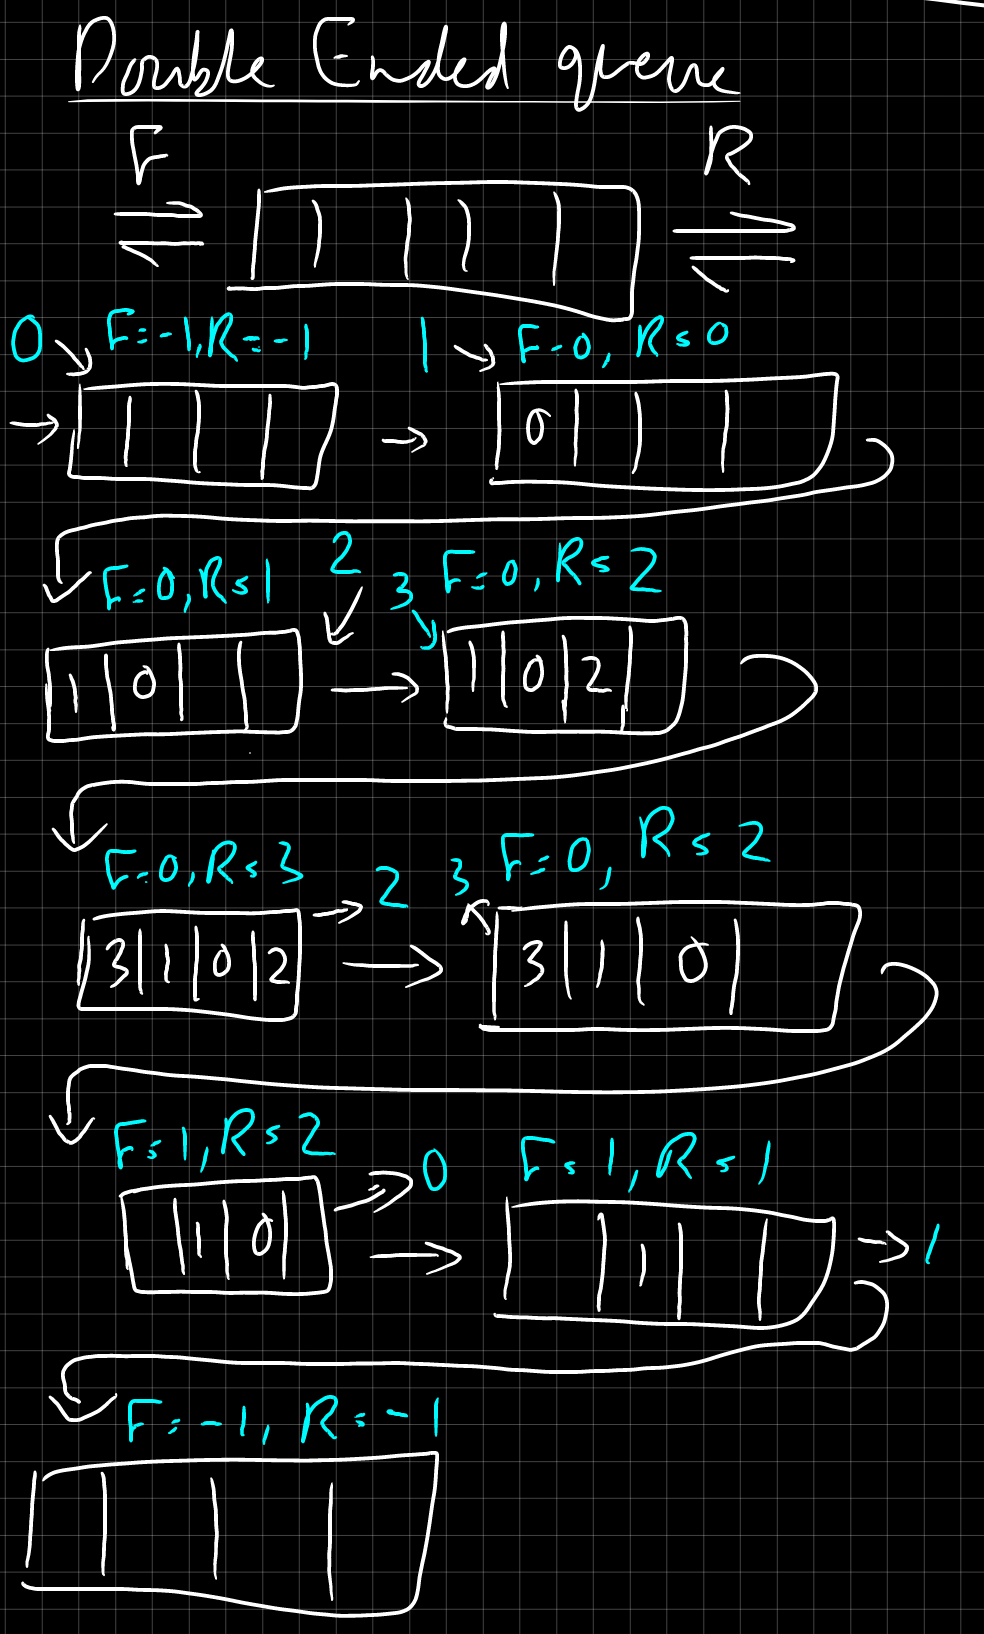 Double Ended queue
F R
0 F=-1,R=-1 1 F=0, R=0
0
F=0,R=1 2 3 F=0,R=2
1 0 1 0 2
F=0,R=3 2 3 F=0, R=2
3 1 0 2 3 1 0
F=1,R=2 0 F=1,R=1
1 0 1 1
F=-1, R=-1